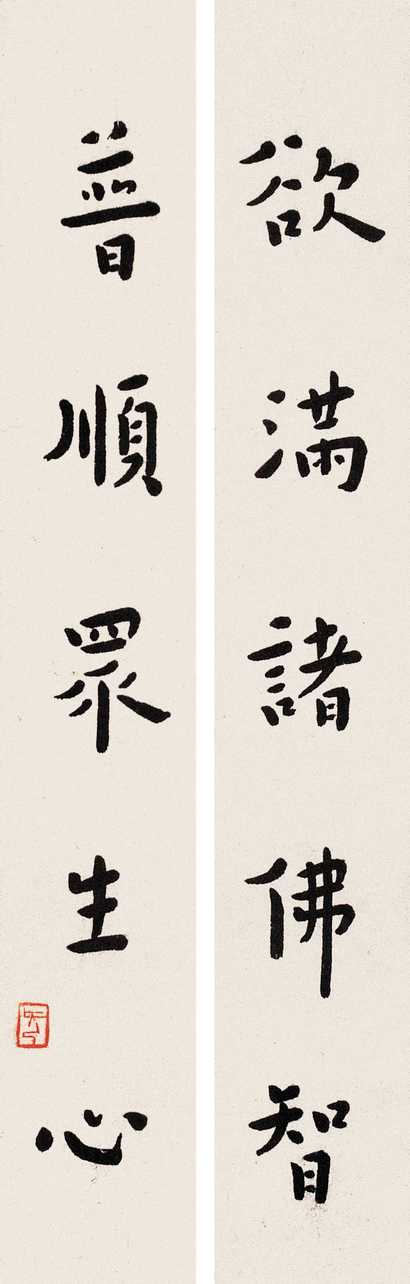 欲滿諸佛智
普順眾生心